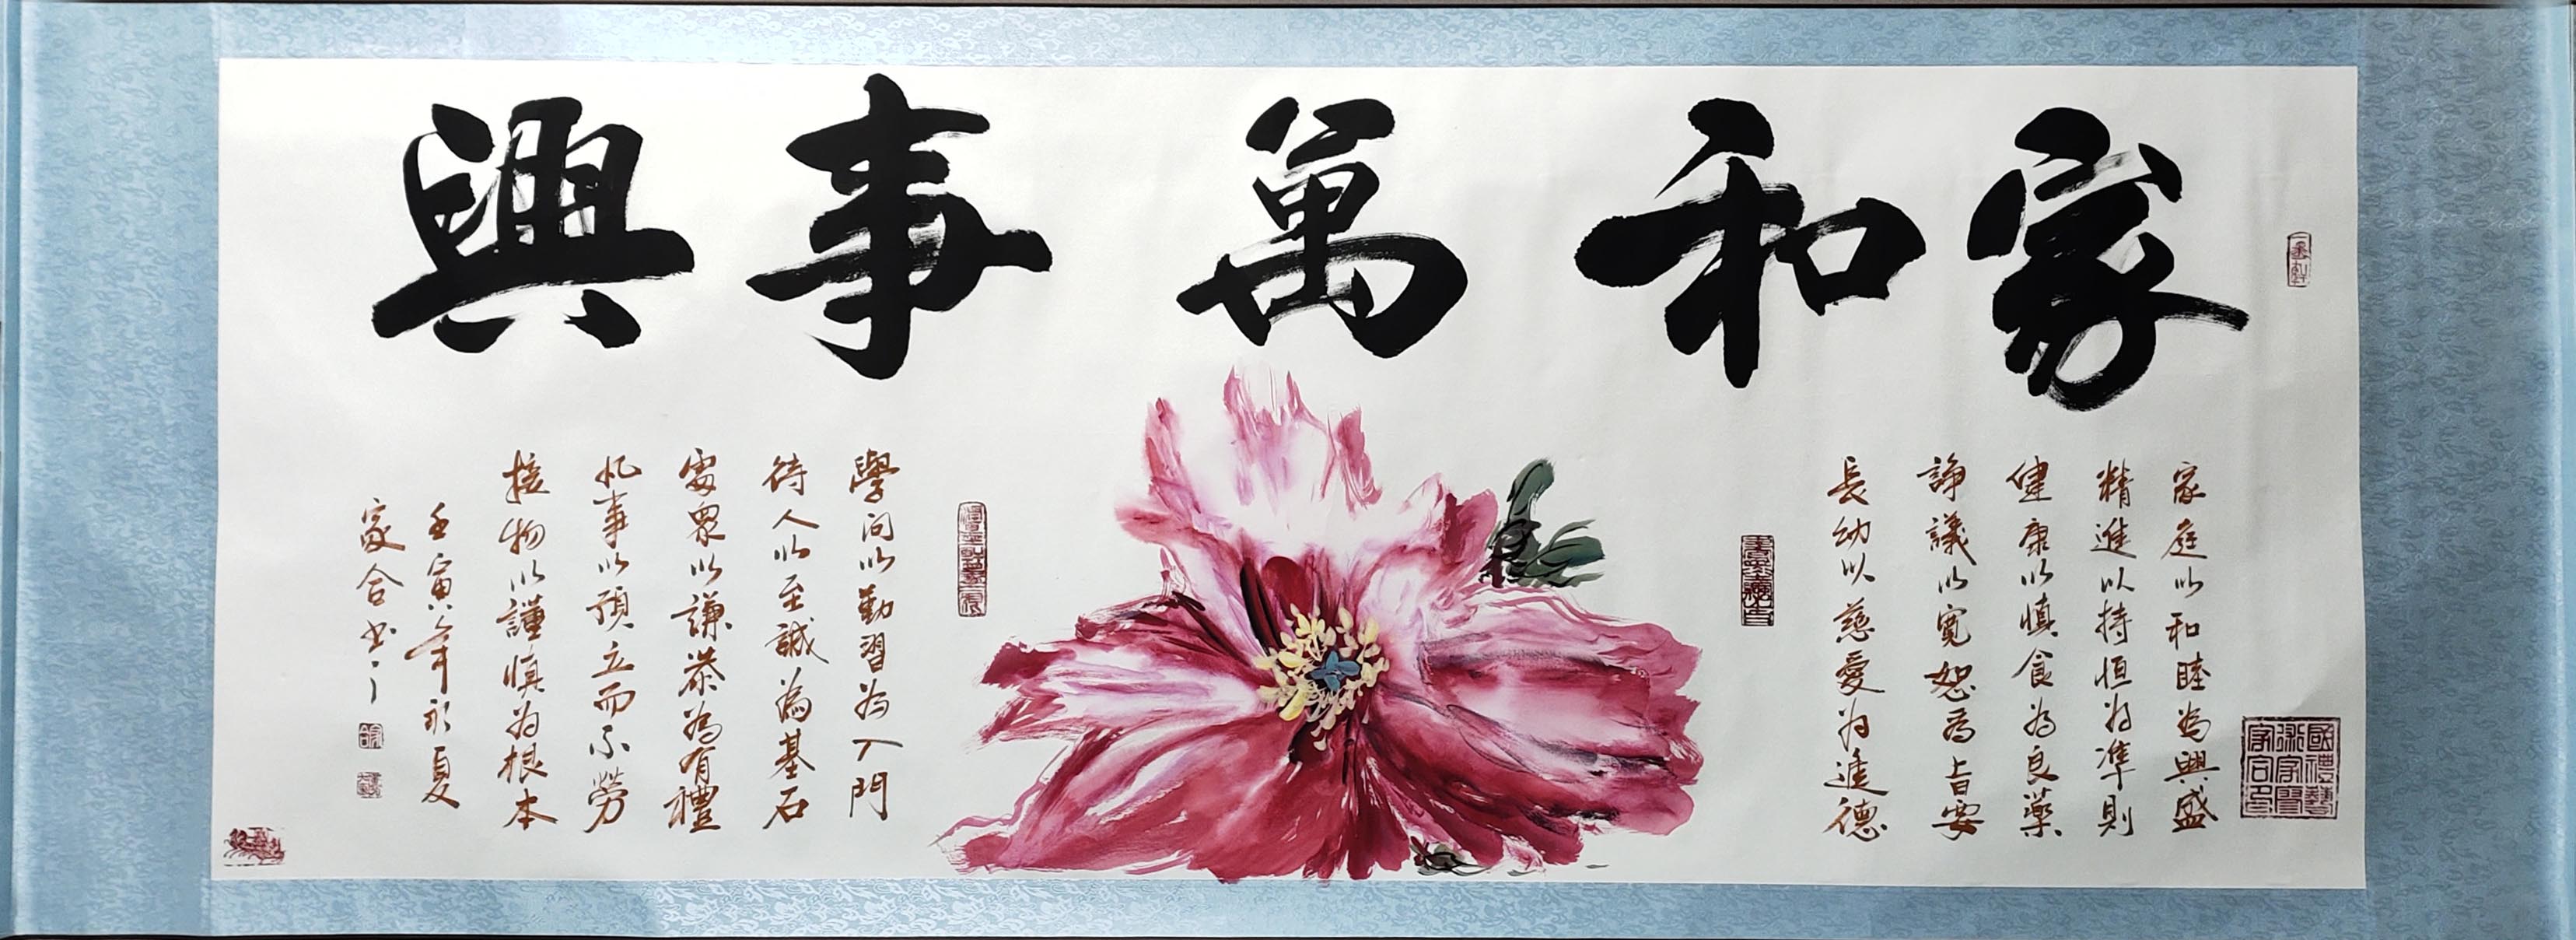 家和萬事興
家庭以和睦為興盛
精進以持恒為準則
健康以慎食為良藥
諍議以寬恕為旨要
長幼以慈愛為進德
學問以勤習為入門
待人以至誠為基石
處眾以謙恭為有禮
凡事以預立而不勞
接物以謹慎為根本
壬寅年初夏
家合书